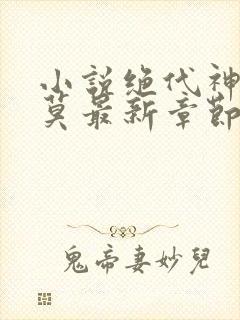 小說绝代神
莫最新章節
鬼帝妻妙兒